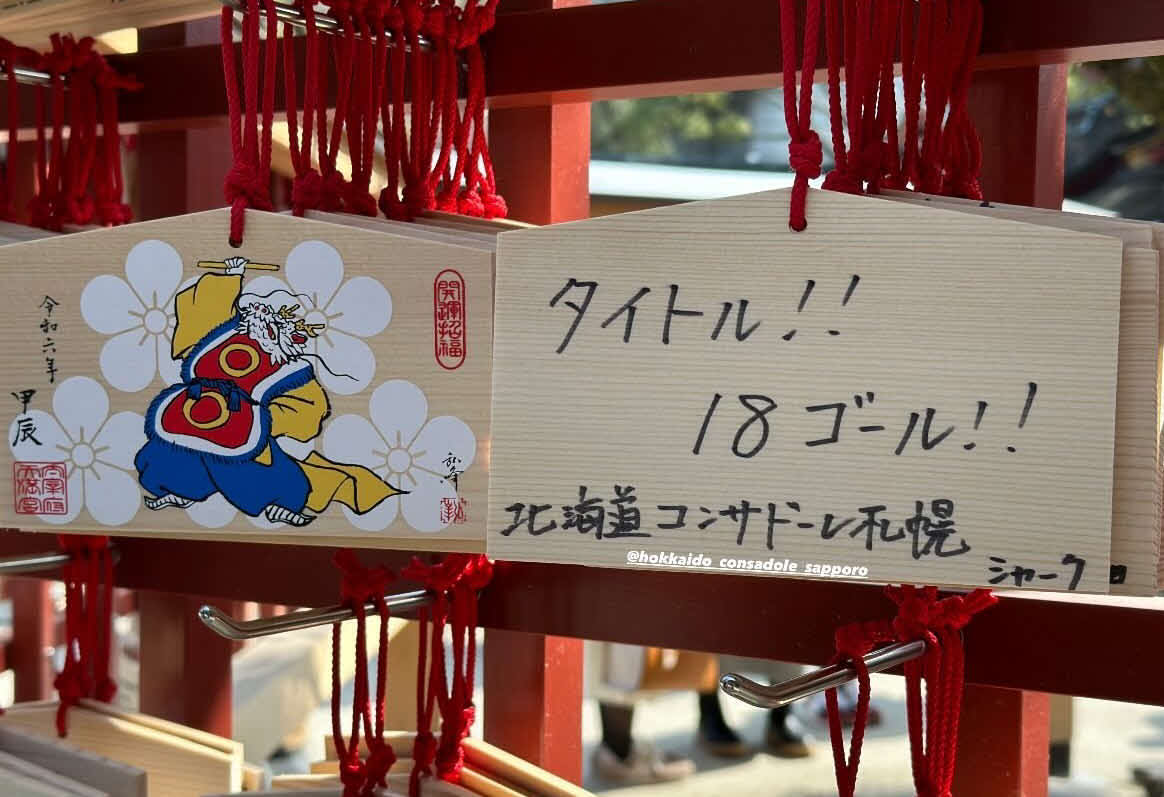 令和六年
甲辰
開運招福
タイトル!!
18ゴール!!
北海道コンサドーレ札幌
@hokkaido_consadole_sapporo
シャーク